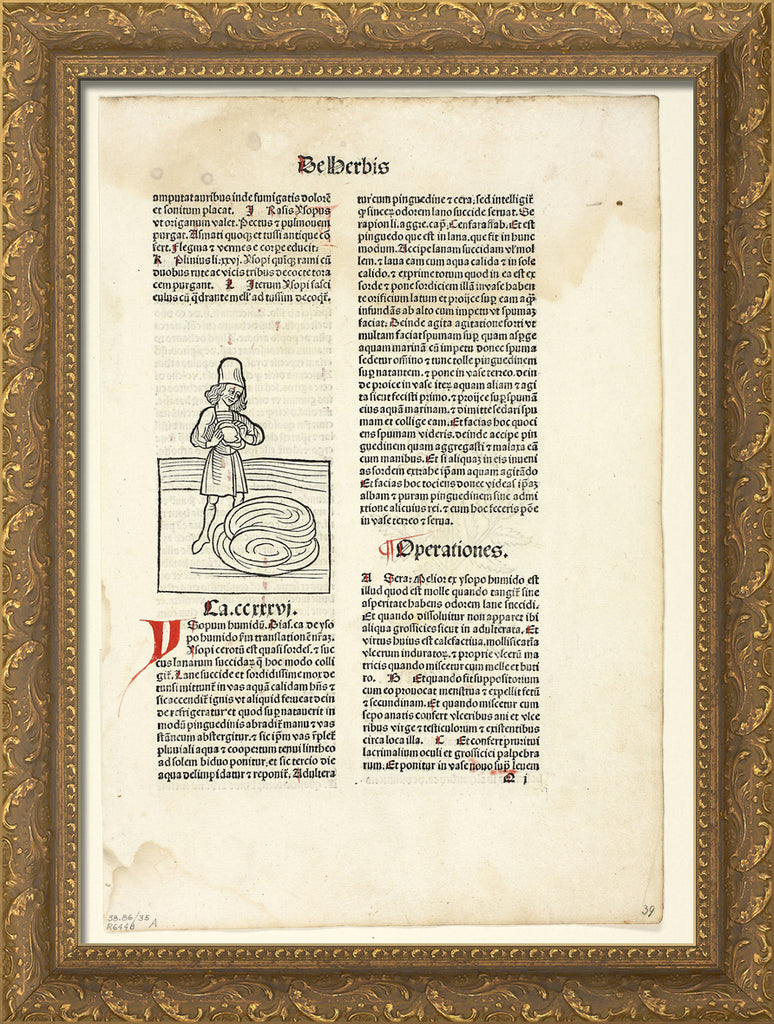 De Herbis
amputat auribus inde fumigatis dolorē
et sonitum placat. J Rasis Ysopus
vt origanum valet. Pectus & pulmonem
purgat. Asmati quoq; et tussi antique cō
fert. Flegma & vermes e corpe educit.
K Plinius li. xxvj. Ysopi quīq; rami cū
duobus rute ac vicis tribus decocte tora
cem purgant. L Iterum Ysopi fasci
culus cū q̄drante mell' ad tussim decoq̄t.
Ca. ccxxxvj.
YSopum humidū. Dias. ca. de yso
po humido fm translationē nr̄az.
Ysopi cerotū est quasi sordes. & suc
cus lanarum succidaꝝ q̄ hoc modo colli
git̄. Lane succide et sordidissime mox de
tunsi mittunt̄ in vas aquā calidam hn̄s &
sic accendit̄ ignis vt aliquid ferueat dein
de refrigeratur et quod suꝑnatauerit in
modū pinguedinis abradit̄ manu & vas
stāneum abstergitur. & sic ip̄m vas r̄plet̄
pluuiali aqua & coopertum tenui lintheo
ad solem biduo ponitur. et sic tercio die
aqua delimpidatur & reponit̄. Adultera
tur cum pinguedine & cera. sed intelligit̄
q̄ sinceꝝ odorem lane succide seruat. Se
rapion li. aggre. cap̄. Cenfaraffab. Et est
pinguedo que est in lana. que fit in hunc
modum. Accipe lanam succidam vl' mol
lem. & laua eam cum aqua calida & in sole
calido. & exprime totum quod in ea est ex
sorde & pone sordiciem illā in vase haben
te orificium latum et proijce suꝑ eam aq̄ꝫ
infundās ab alto cum impetu vt spumaꝫ
faciat. Deinde agita agitatione forti vt
multam faciat spumam suꝑ quam asp̄ge
aquam marinā cū impetu donec spuma
sedetur om̄ino & tunc tolle pinguedinem
suꝑnatantem. & pone in vase terreo. dein
de proice in vase iteꝝ aquam aliam & agi
ta sicut fecisti primo. & proijce suꝑ spumā
eius aquā marinam. & dimitte sedari spu
mam et collige eam. Et facias hoc quoci
ens spumam videris. deinde accipe pin
guedinem quam aggregasti & malaxa eā
cum manibus. Et si aliquaꝫ in eis inueni
as sordem extrahe ip̄am aquam agitādo
Et facias hoc tociens donec videas ip̄aꝫ
albam & puram pinguedinem sine admi
xtione alicuius rei. & cum hoc feceris pōe
in vase terreo & serua.
¶ Operationes.
A Sera: Melior ex ysopo humido est
illud quod est molle quando tangit̄ sine
asperitate habens odorem lane succidi.
Et quando dissoluitur non apparet ibi
aliqua grossicies sicut in adulterata. Et
virtus huius est calefactiua. mollificat ɋ
vlcerum induratoꝝ. & proprie vlceꝝ ma
tricis quando miscetur cum melle et buti
ro. B Et quando fit suppositorium
cum eo prouocat menstrua & expellit fetū
& secundinam. Et quando miscetur cum
sepo anatis confert vlceribus ani et vlce
ribus virge & testiculorum & existentibus
circa loca illa. C Et confert pruritui
lacrimalium oculi et grossiciei palpebra
rum. Et ponitur in vase nouo suꝑ leuem
Q i
38.86/35 A
R6448
39